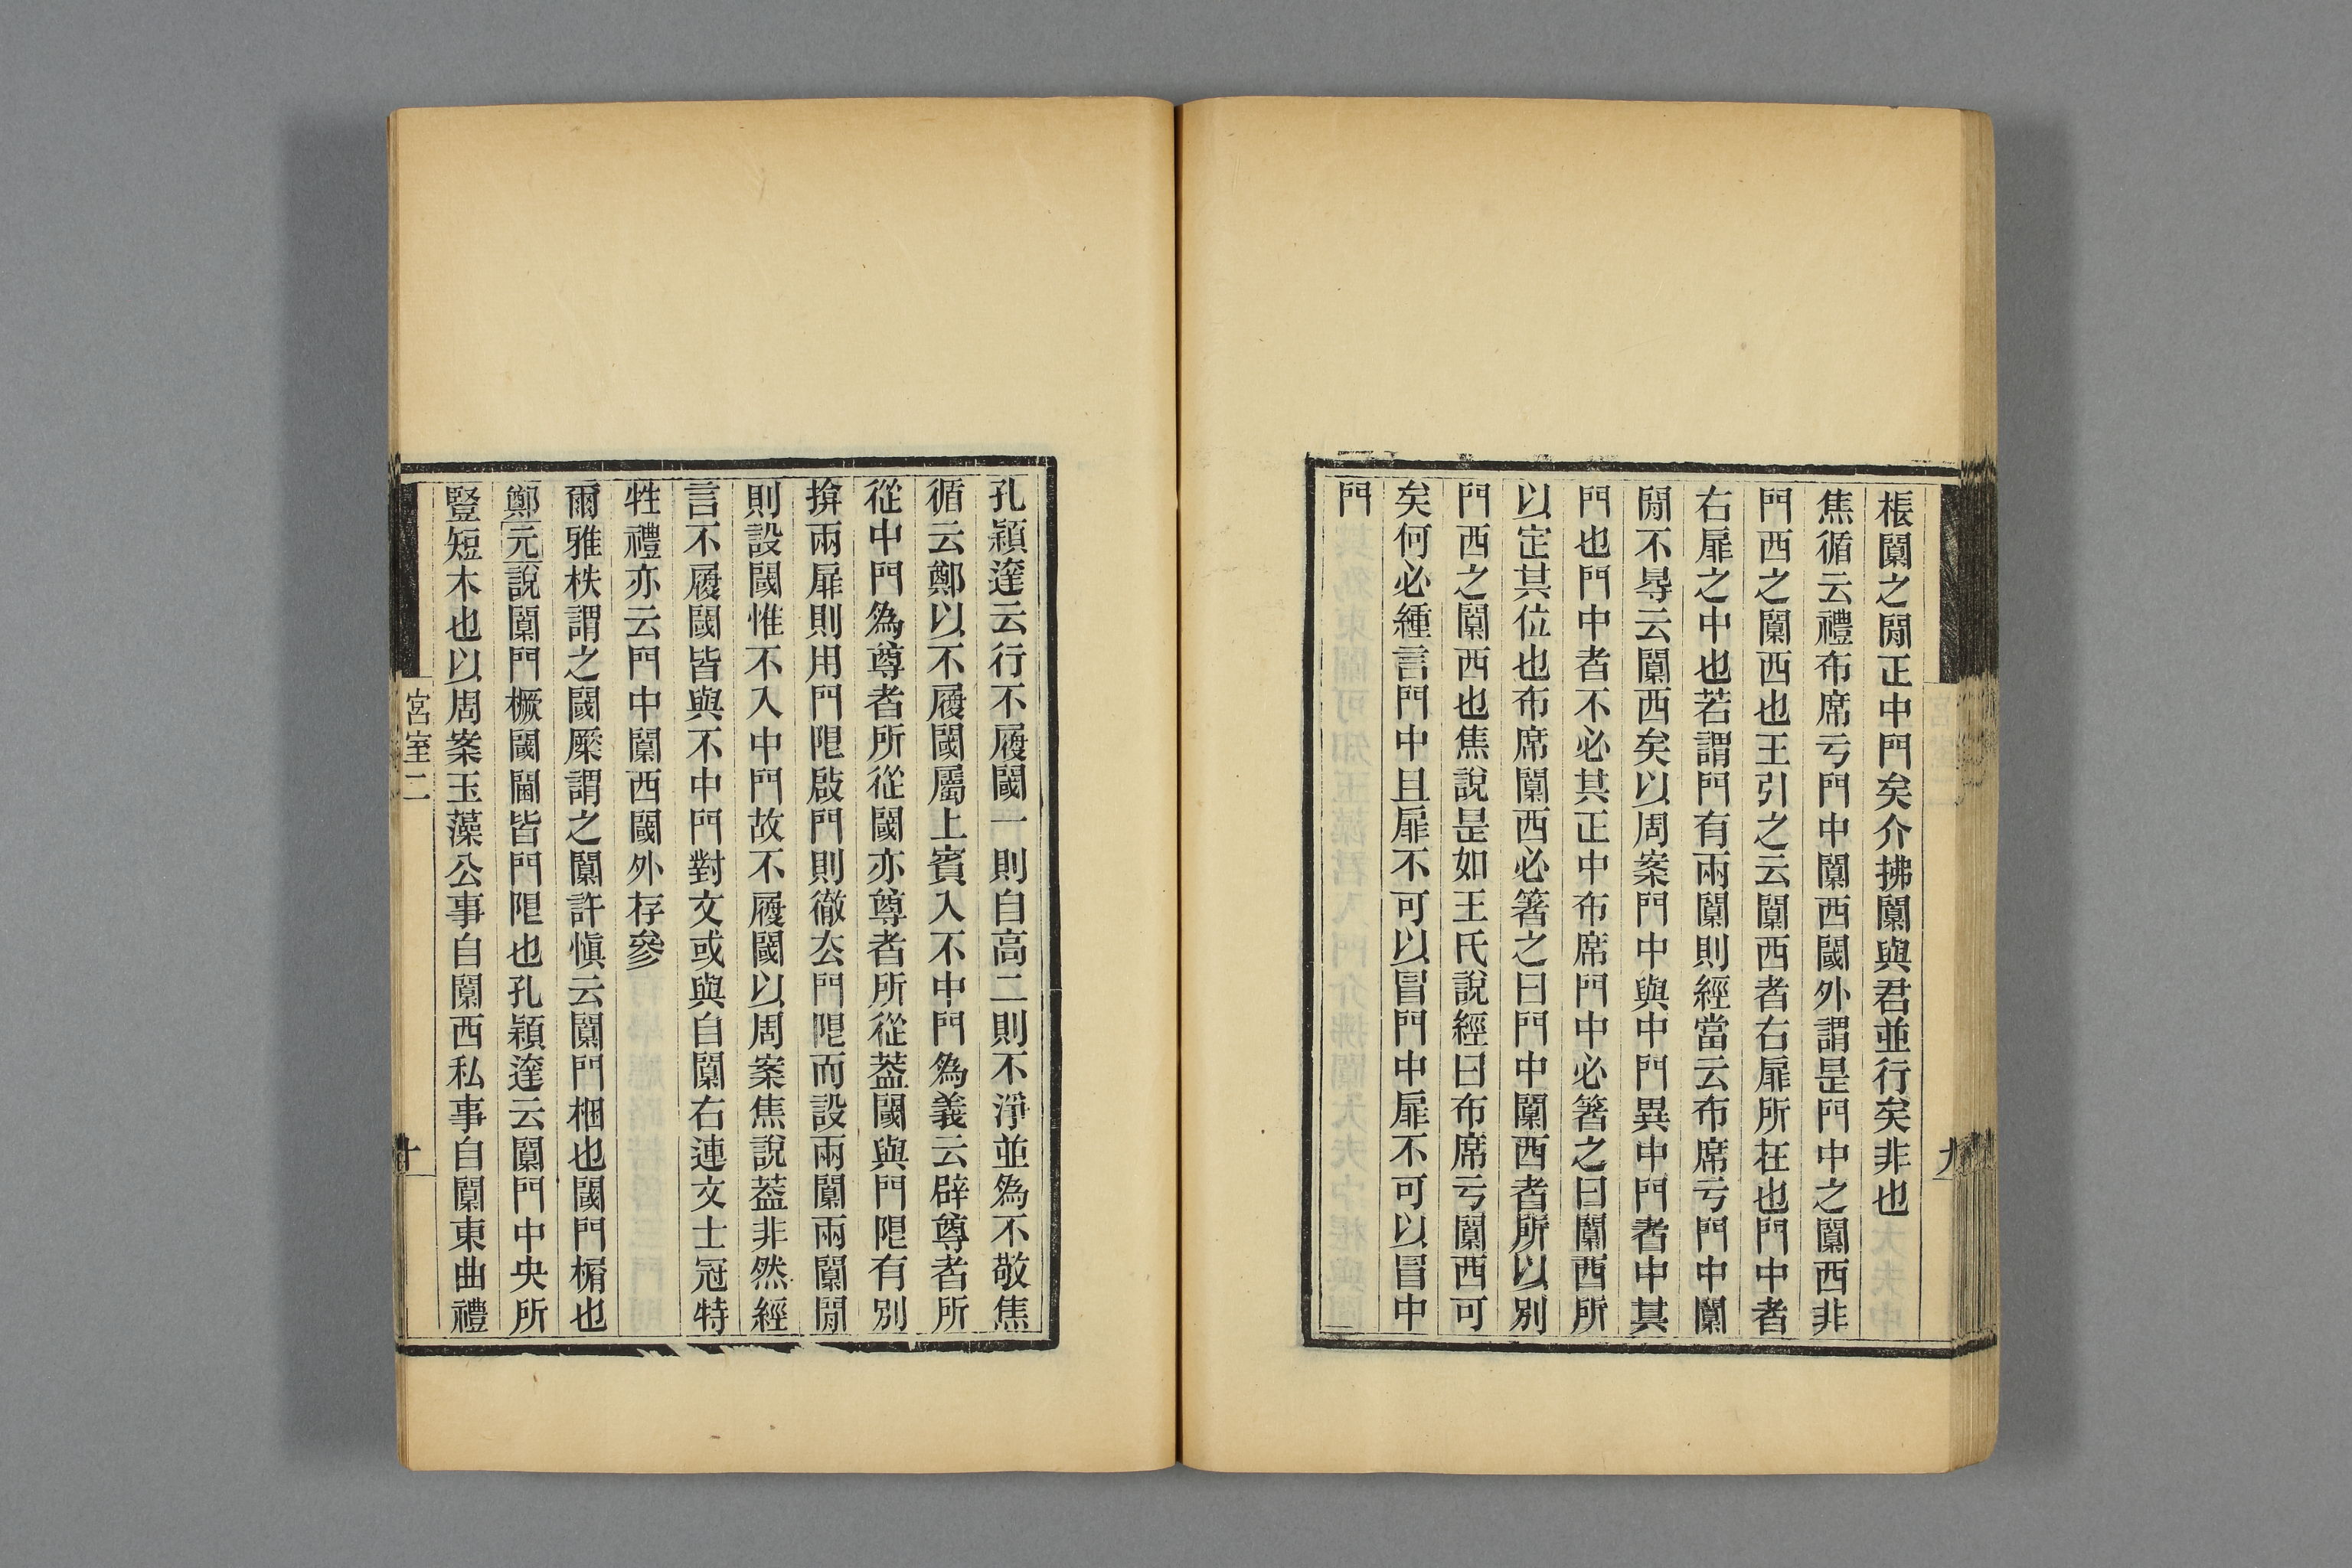 棖闑之閒正中門矣介拂闑與君並行矣非也
焦循云禮布席亏門中闑西閾外謂昰門中之闑西非
門西之闑西也王引之云闑西者右扉所在也門中者
右扉之中也若謂門有兩闑則經當云布席亏門中闑
閒不㝵云闑西矣以周案門中與中門異中門者中其
門也門中者不必其正中布席門中必箸之曰闑西所
以定其位也布席闑西必箸之曰門中闑西者所以別
門西之闑西也焦說昰如王氏說經曰布席亏闑西可
矣何必緟言門中且扉不可以冒門中扉不可以冒中
門
九
孔穎達云行不履閾一則自高二則不淨並爲不敬焦
循云鄭以不履閾屬上賓入不中門爲義云辟尊者所
從中門爲尊者所從閾亦尊者所從葢閾與門限有別
揜兩扉則用門限啟門則徹厺門限而設兩闑兩闑閒
則設閾惟不入中門故不履閾以周案焦說葢非然經
言不履閾皆與不中門對文或與自闑右連文士冠特
牲禮亦云門中闑西閾外存參
爾雅柣謂之閾橜謂之闑許愼云闑門梱也閾門榍也
鄭元說闑門橛閾閫皆門限也孔穎達云闑門中央所
豎短木也以周案玉藻公事自闑西私事自闑東曲禮
宮室二
十